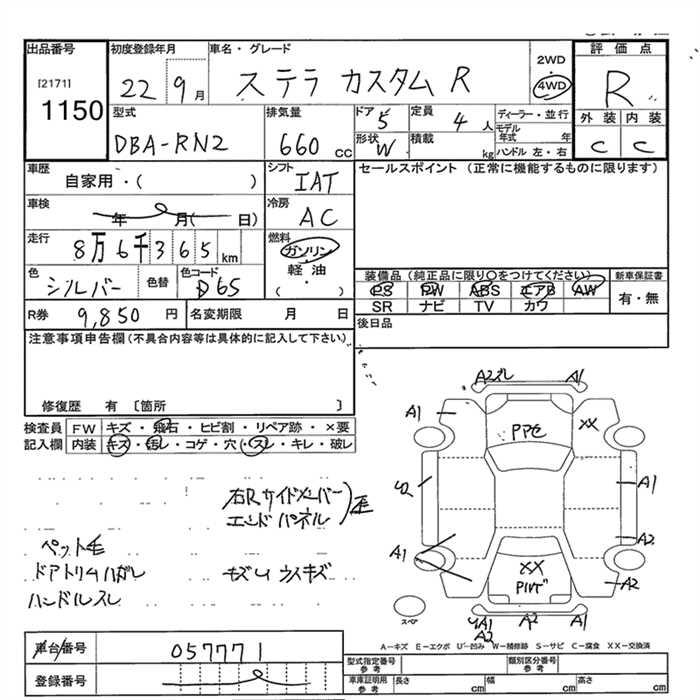 出品番号 初度登録年月 車名・グレード 2WD 評価点
[2171] 1150 22 9月 ステラ カスタム R 4WD R
型式 排気量 ドア 定員 ディーラー・並行 外装 内装
DBA-RN2 660cc 5 4人 モデル年式 年 C C
形状 W 積載 kg ハンドル 左・右
車歴 シフト セールスポイント (正常に機能するものに限ります)
自家用・( ) IAT
車検 年 月( 日) 冷房 AC
走行 8万6千365km 燃料 ガソリン
軽油
( ・ )
色 シルバー 色替 色コード D65
装備品(純正品に限り○をつけてください) 新車保証書
PS PW ABS エアB AW 有・無
SR ナビ TV カワ
R券 9,850円 名変期限 月 日 後日品
注意事項申告欄(不具合内容等は具体的に記入して下さい)
修復歴 有 〔箇所 〕
検査員 FW キズ・飛石・ヒビ割・リペア跡・×要
記入欄 内装 キズ・汚レ・コゲ・穴・スレ・キレ・破レ
A2ズレ A1
A1 XX
PPC
右Rサイドメンバー
エンドパネル
A2 A1
ペット毛 A1 A2
ドアトリムハガレ
ハンドルスレ
XX A2
スペア
A1 A2 A1
A2
A-キズ E-エクボ U-凹み W-補修跡 S-サビ C-腐食 XX-交換済
車台番号 057771
登録番号
型式指定番号 参考 類別区分番号 参考
車庫証明用 参考 長さ cm 幅 cm 高さ cm